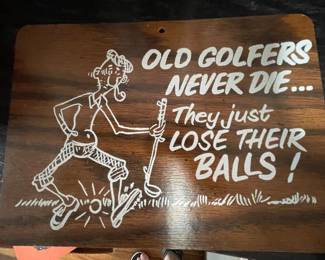 OLD GOLFERS
NEVER DIE...
They just
LOSE THEIR
BALLS!